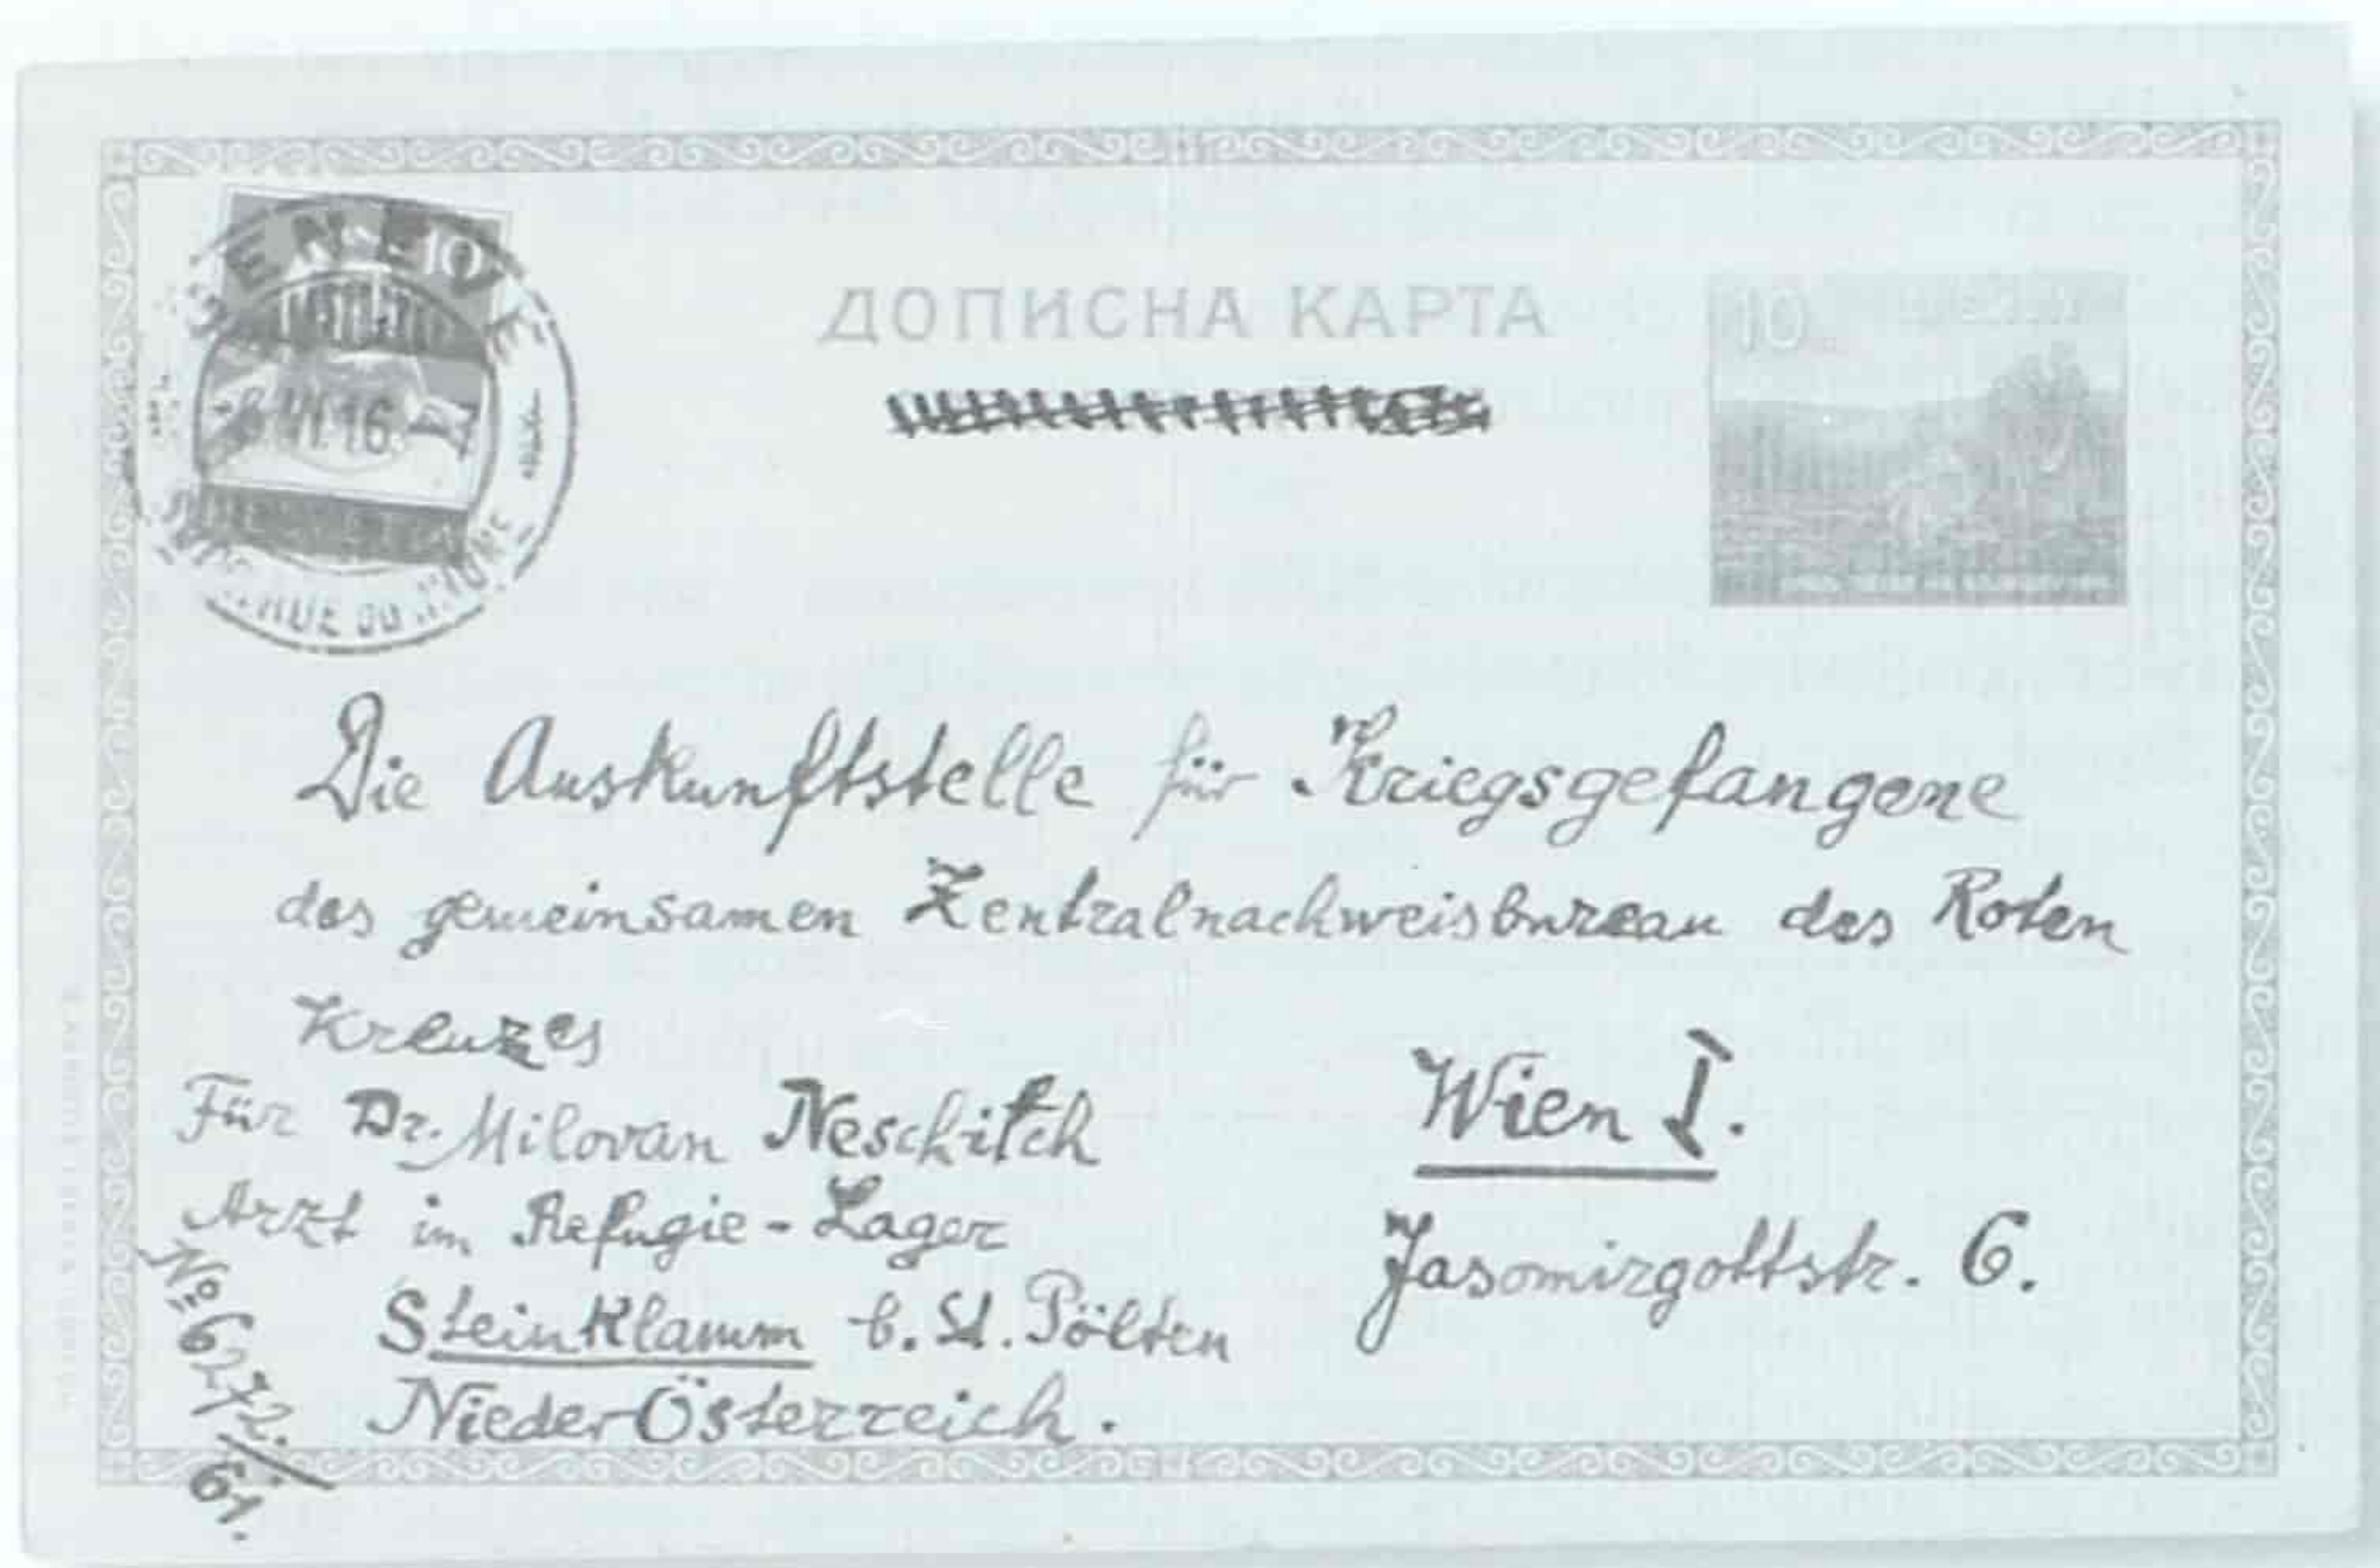 10
ДОПИСНА КАРТА
10
GENÈVE
VI.16
RUE DU RHONE
Die Auskunftstelle für Kriegsgefangene
des gemeinsamen Zentralnachweisbureau des Roten
Kreuzes
Für Dr. Milovan Neschitch
Arzt im Refugie-Lager
SteinKlamm b. St. Pölten
NiederÖsterreich.
Wien I.
Jasomirgottstr. 6.
№ 6272/61.